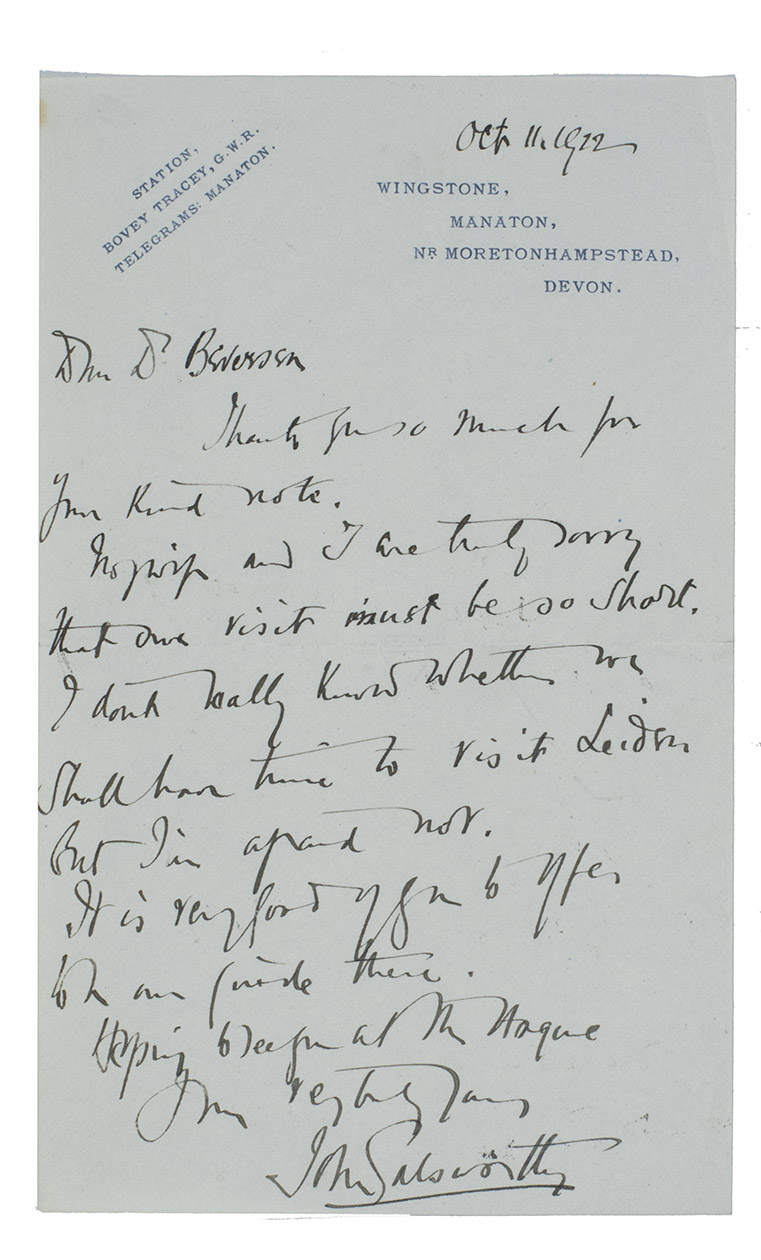 STATION,
BOVEY TRACEY, G.W.R.
TELEGRAMS: MANATON.
Oct 11. 1922
WINGSTONE,
MANATON,
NR MORETONHAMPSTEAD,
DEVON.
Dear Dr Beversen
Thank you so much for
your kind note.
My wife and I are truly sorry
that our visit must be so short.
I don't really know whether we
shall have time to visit Leiden
But I'm afraid not.
It is very good of you to offer
to be our guide there.
Hoping to see you at the Hague
I am very truly yours
John Galsworthy